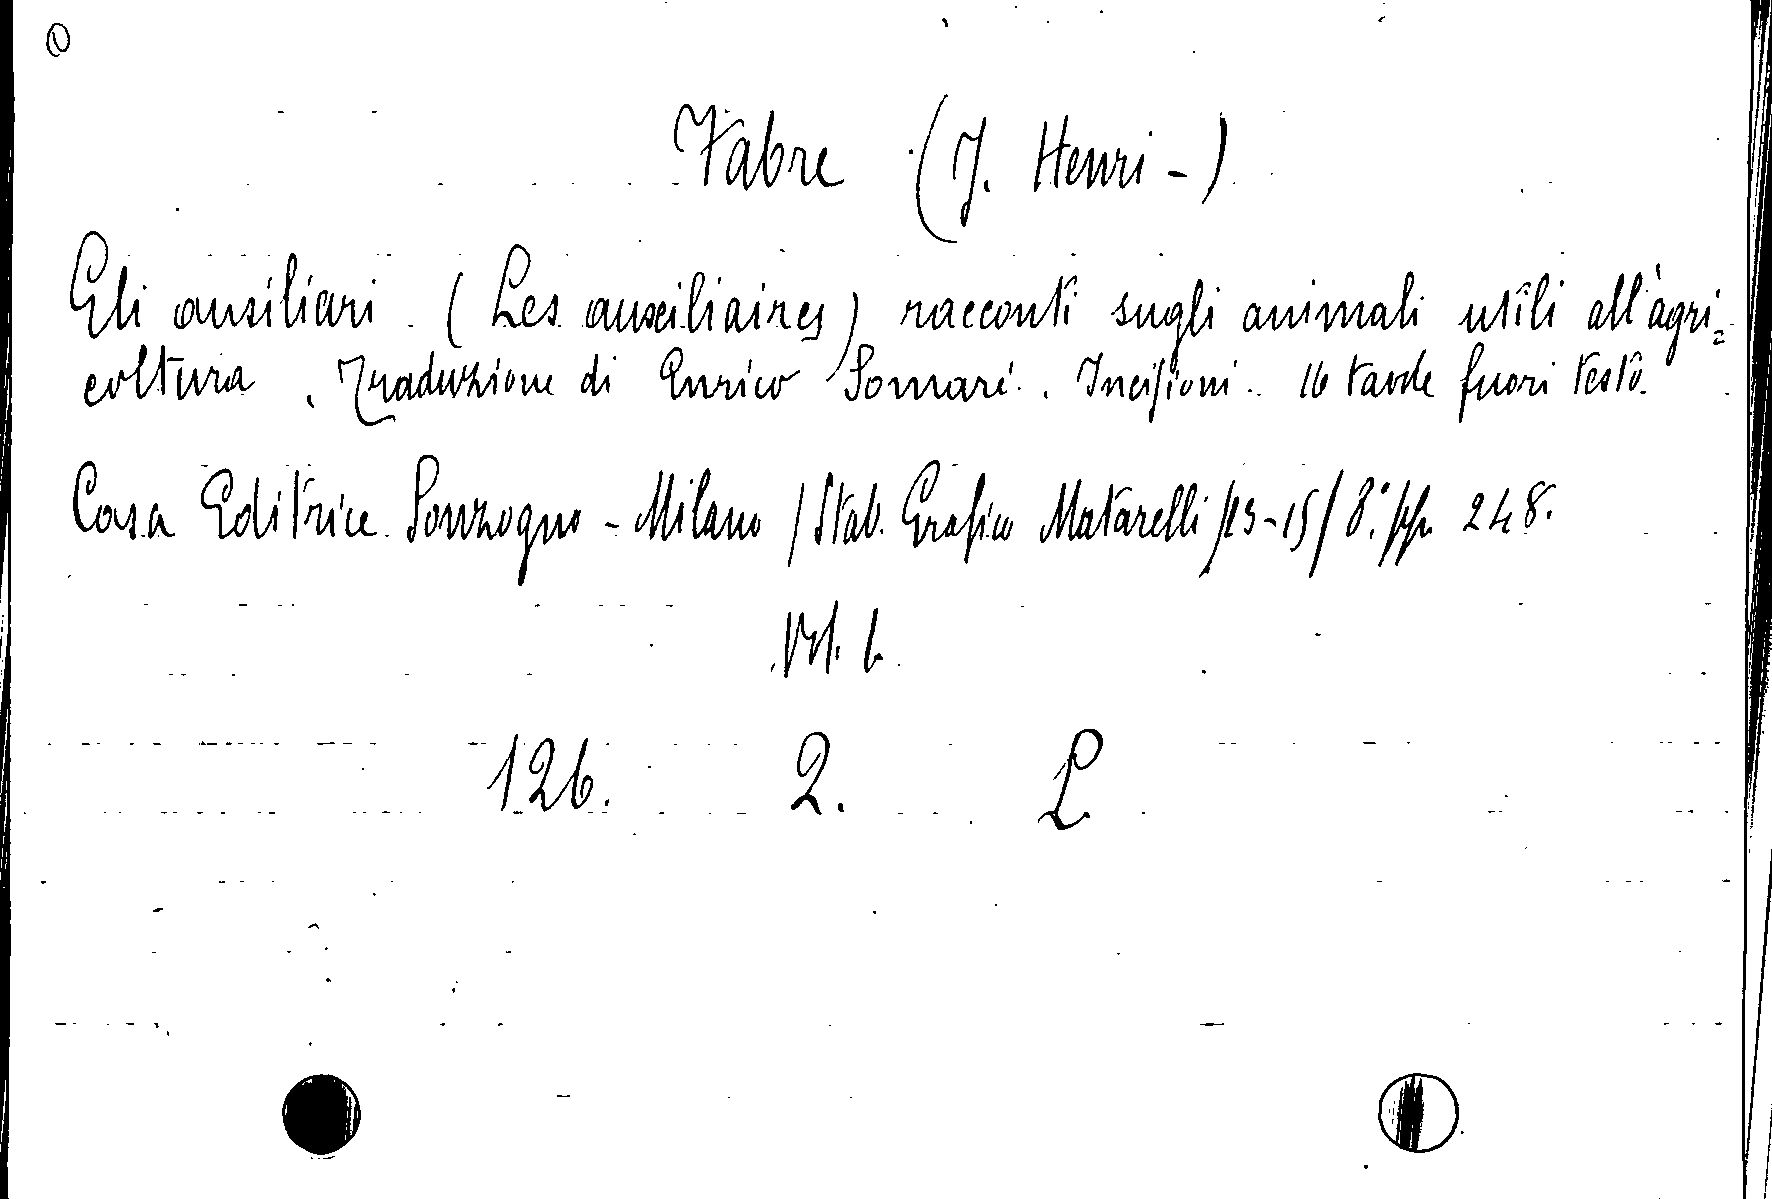 Fabre (J. Henri-)
Gli ausiliari. (Les auxiliaires) racconti sugli animali utili all'agri=
coltura. Traduzione di Enrico Somaré. Incisioni. 16 tavole fuori testo.
Casa Editrice Sonzogno - Milano / Stab. Grafico Matarelli / 23-15 / 8.° / pp. 248.
Vol. 1.
126. 2. L